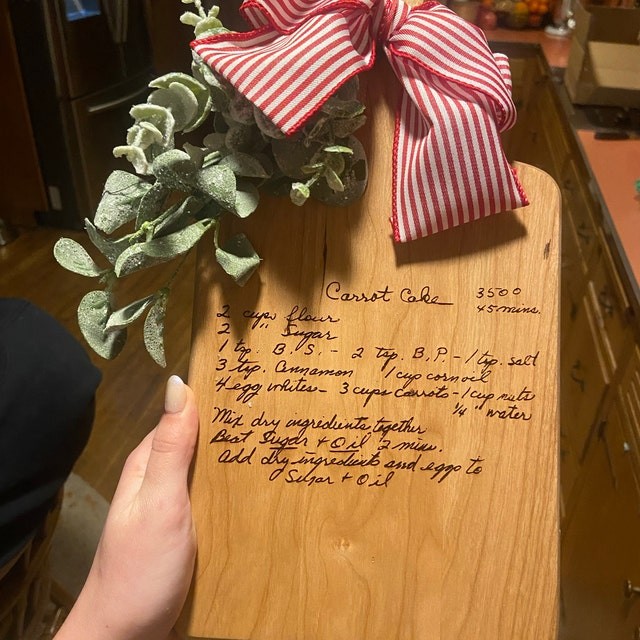 Carrot Cake 350°
45 mins.
2 cups flour
2 " Sugar
1 tsp. B.S. - 2 tsp. B.P. - 1 tsp. salt
3 tsp. Cinnamon 1 cup corn oil
4 egg whites - 3 cups carrots - 1 cup nuts
¼ " water
Mix dry ingredients together
Beat Sugar + Oil 2 mins.
Add dry ingredients and eggs to
Sugar + Oil